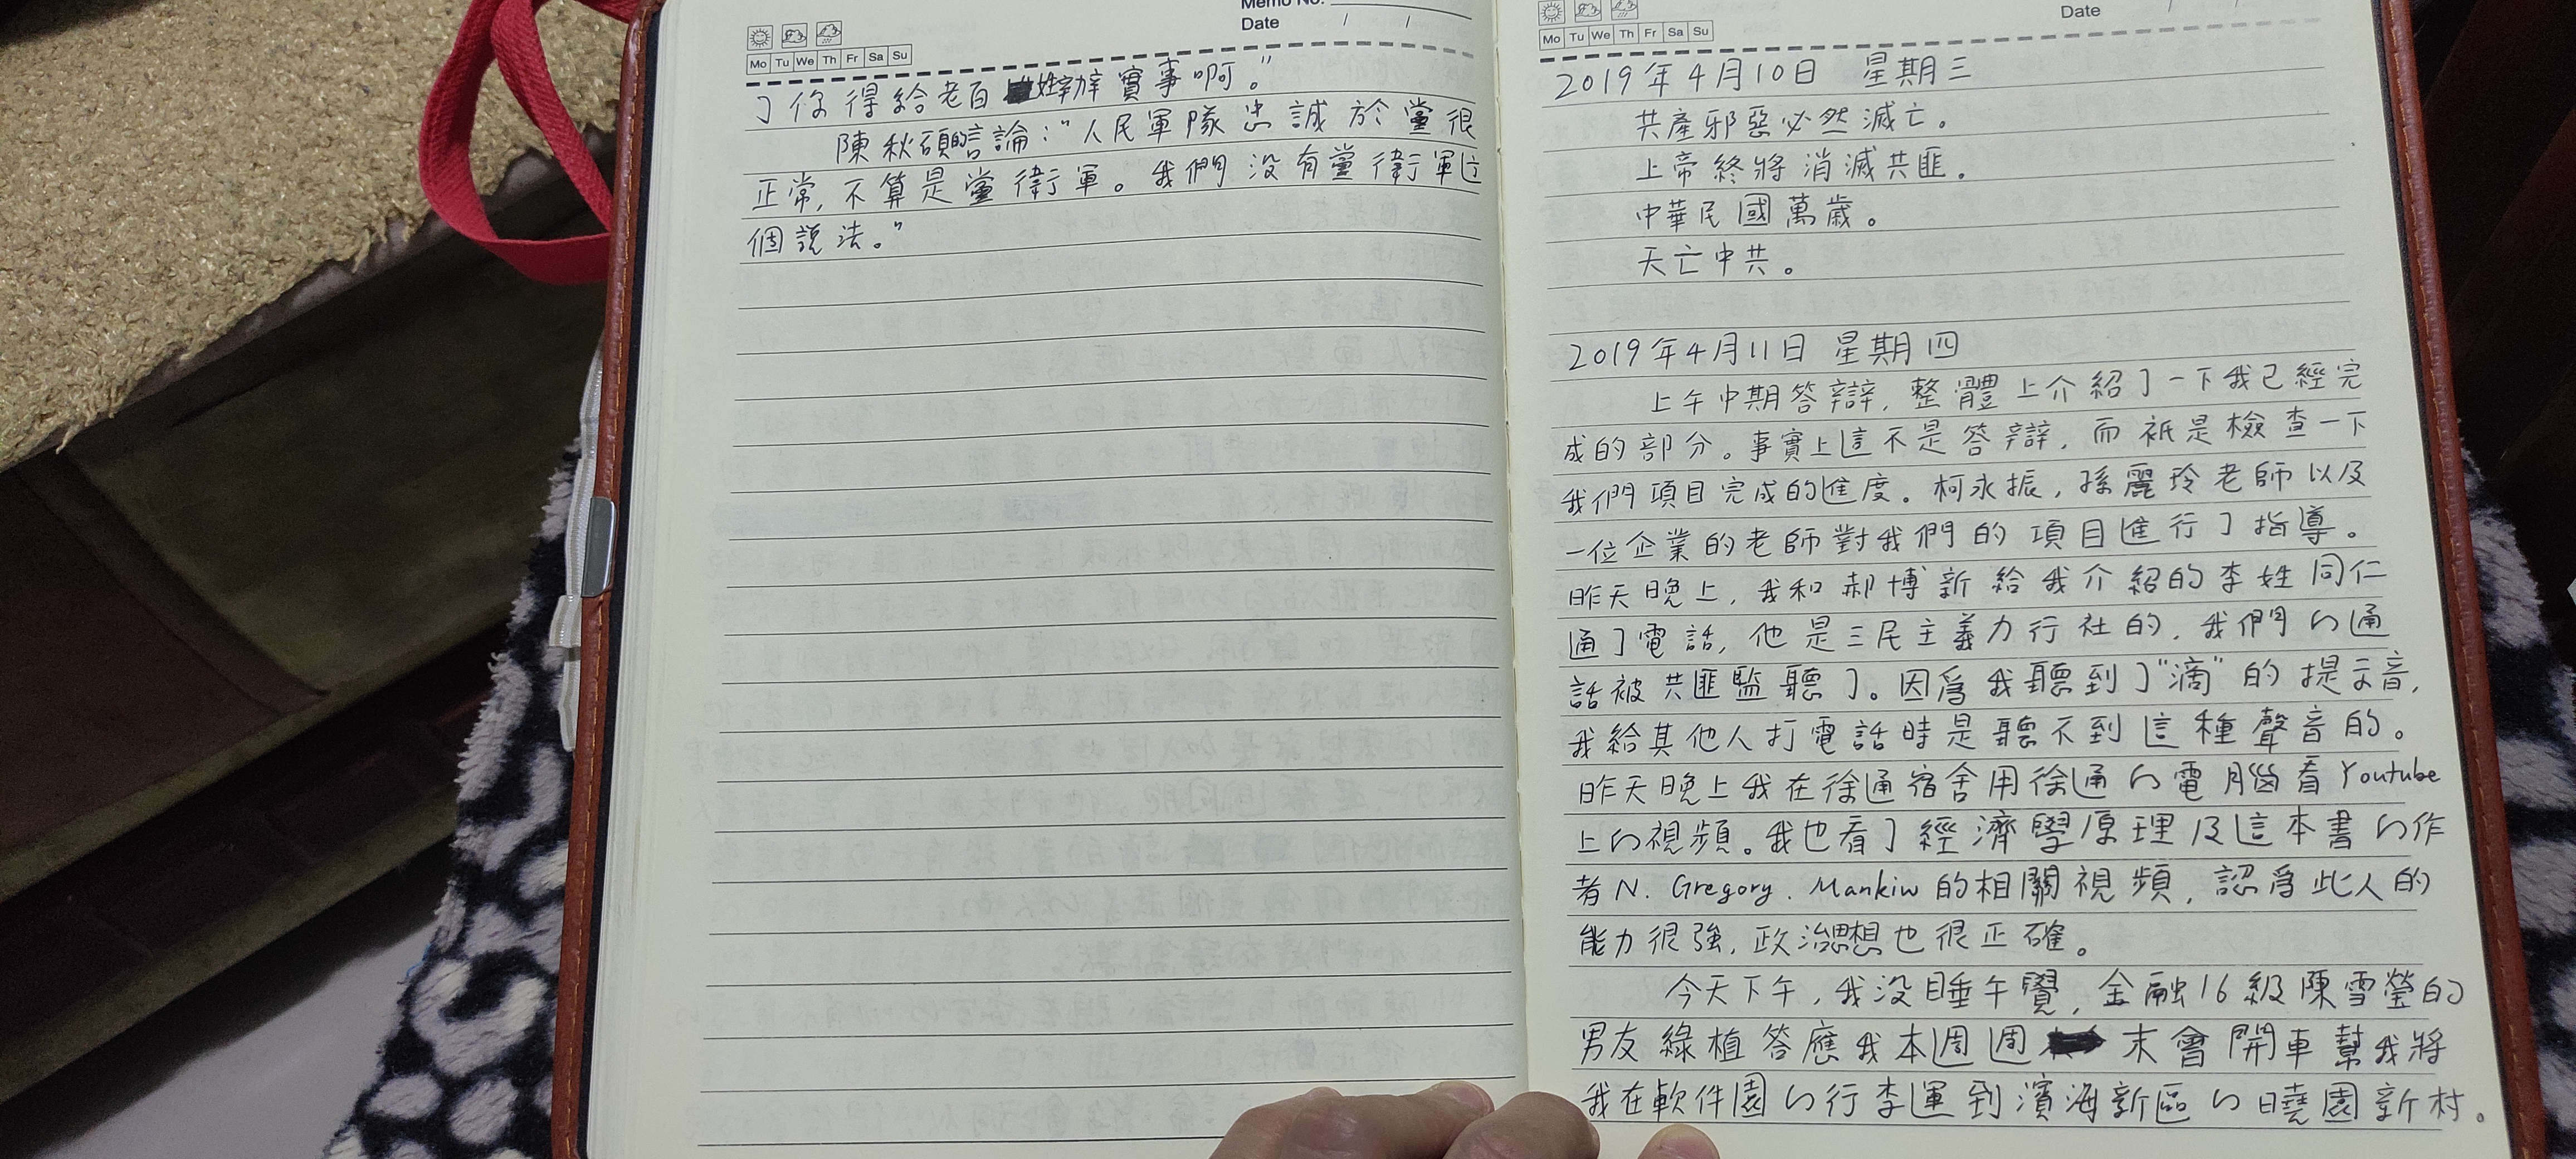 Memo No.
Date / /
Mo Tu We Th Fr Sa Su
了你得給老百姓辦實事啊。"
陳秋碩言論："人民軍隊忠誠於黨很
正常,不算是黨衛軍。我們沒有黨衛軍這
個說法。"
Date / /
Mo Tu We Th Fr Sa Su
2019年4月10日 星期三
共產邪惡必然滅亡。
上帝終將消滅共匪。
中華民國萬歲。
天亡中共。
2019年4月11日 星期四
上午中期答辯,整體上介紹了一下我已經完
成的部分。事實上這不是答辯,而衹是檢查一下
我們項目完成的進度。柯永振,孫麗玲老師以及
一位企業的老師對我們的項目進行了指導。
昨天晚上,我和郝博新給我介紹的李姓同仁
通了電話,他是三民主義力行社的,我們的通
話被共匪監聽了。因爲我聽到了"滴"的提示音,
我給其他人打電話時是聽不到這種聲音的。
昨天晚上我在徐通宿舍用徐通的電腦看Youtube
上的視頻。我也看了經濟學原理及這本書的作
者N. Gregory. Mankiw的相關視頻,認爲此人的
能力很強,政治思想也很正確。
今天下午,我沒睡午覺,金融16級陳雪瑩的
男友綠植答應我本周周末會開車幫我將
我在軟件園的行李運到濱海新區的曉園新村。